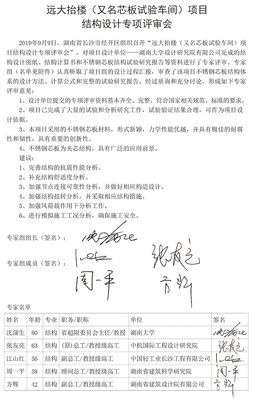 远大抬楼（又名芯板试验车间）项目
结构设计专项评审会
2019年9月9日，湖南省长沙市经开区组织召开“远大抬楼（又名芯板试验车间）项
目结构设计专项评审会”，对项目设计单位——湖南大学设计研究院有限公司完成的结
构设计图纸、结构计算书和不锈钢芯板结构试验研究报告等资料进行了专项评审。专家
组（名单见附件）认真听取了项目组的设计过程汇报，审查了该项目不锈钢芯板结构体系的
设计方法、计算公式和完整的试验研究报告，经过质询和充分讨论，形成如下专家
评审意见：
1、设计单位提交的专项评审资料基本齐全、完整，符合国家相关规范、标准的要求。
2、项目已完成了大量的试验和分析研究工作，试验验证结果合理，可作为项目设
计依据。
3、本项目采用的不锈钢芯板材料，形式新颖，力学性能优越，并具有极佳的耐腐
性和韧性，具有重要的创新性。
4、不锈钢芯板为夹芯结构，具有广泛的应用前景。
建议：
1、完善结构的抗震性能分析。
2、补充结构舒适度分析。
3、加强节点连接可靠性分析，并做好相应构造设计。
4、加强结构扭转分析，并采取相应结构措施。
5、加强风荷载作用下分析工作。
6、进行模拟施工工况分析，确保施工安全。
专家组组长（签名）：
专家组成员（签名）：
专家名单
姓名 年龄 专业 职务/职称 单位 签名
沈蒲生 80 结构 省超限委员会主任/教授 湖南大学
张友亮 63 结构 (原)总工/教授级高工 中机国际工程设计研究院
江山红 56 结构 (原)总工/教授级高工 中国轻工业长沙工程有限公司
周一平 58 结构 顾问总工/教授级高工 湖南省建筑科学研究院
方辉 42 结构 副总工/教授级高工 湖南省建筑设计院有限公司